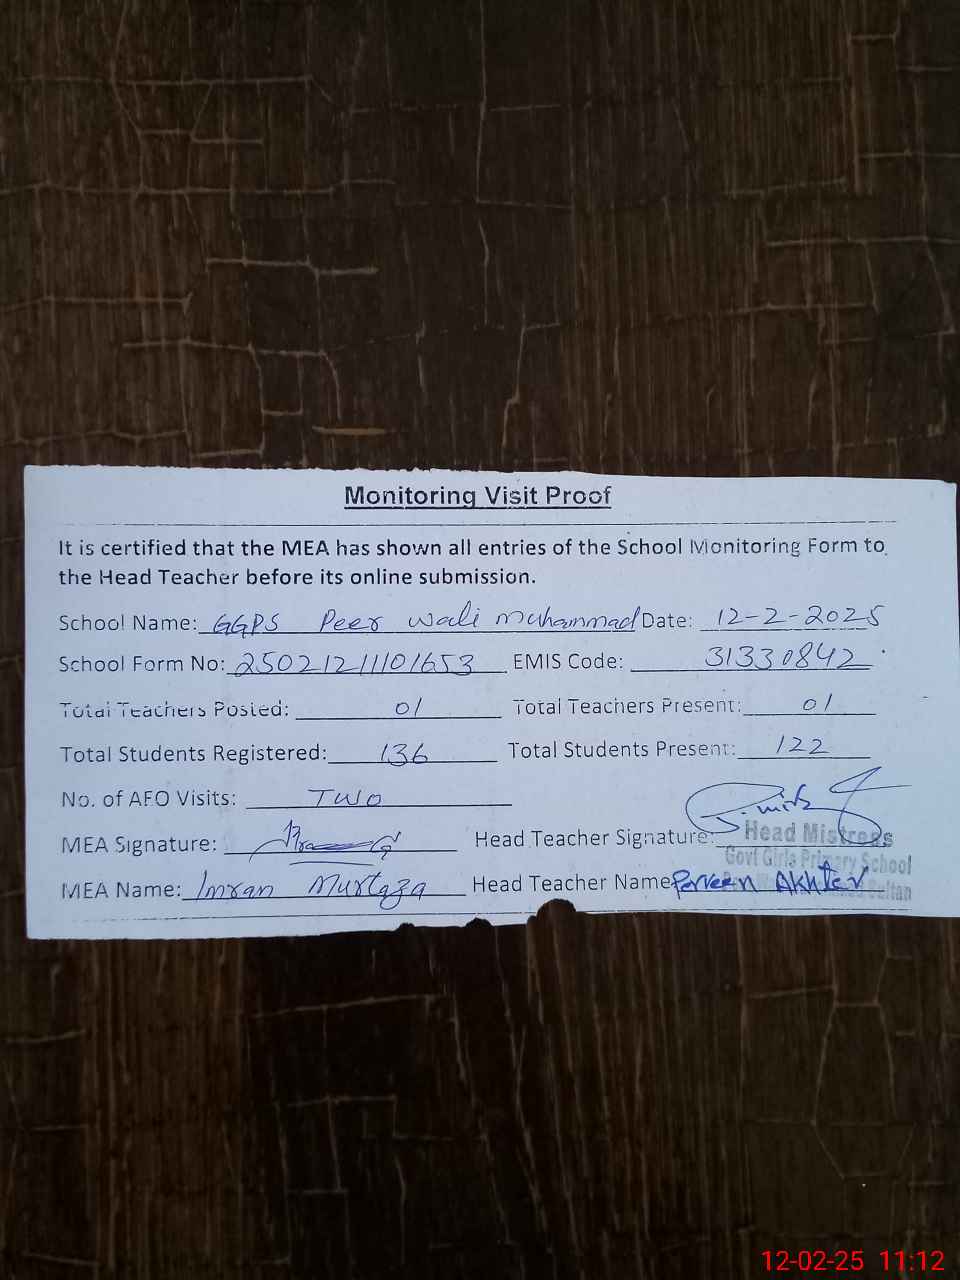 Monitoring Visit Proof
It is certified that the MEA has shown all entries of the School Monitoring Form to
the Head Teacher before its online submission.
School Name: GGPS Peer Wali Muhammad Date: 12-2-2025
School Form No: 25021211101653 EMIS Code: 31330842
Total Teachers Posted: 01 Total Teachers Present: 01
Total Students Registered: 136 Total Students Present: 122
No. of AFO Visits: TWO
MEA Signature: Head Teacher Signature:
Head Mistress
Govt Girls Primary School
MEA Name: Imran Murtaza Head Teacher Name: Parveen Akhter
12-02-25 11:12